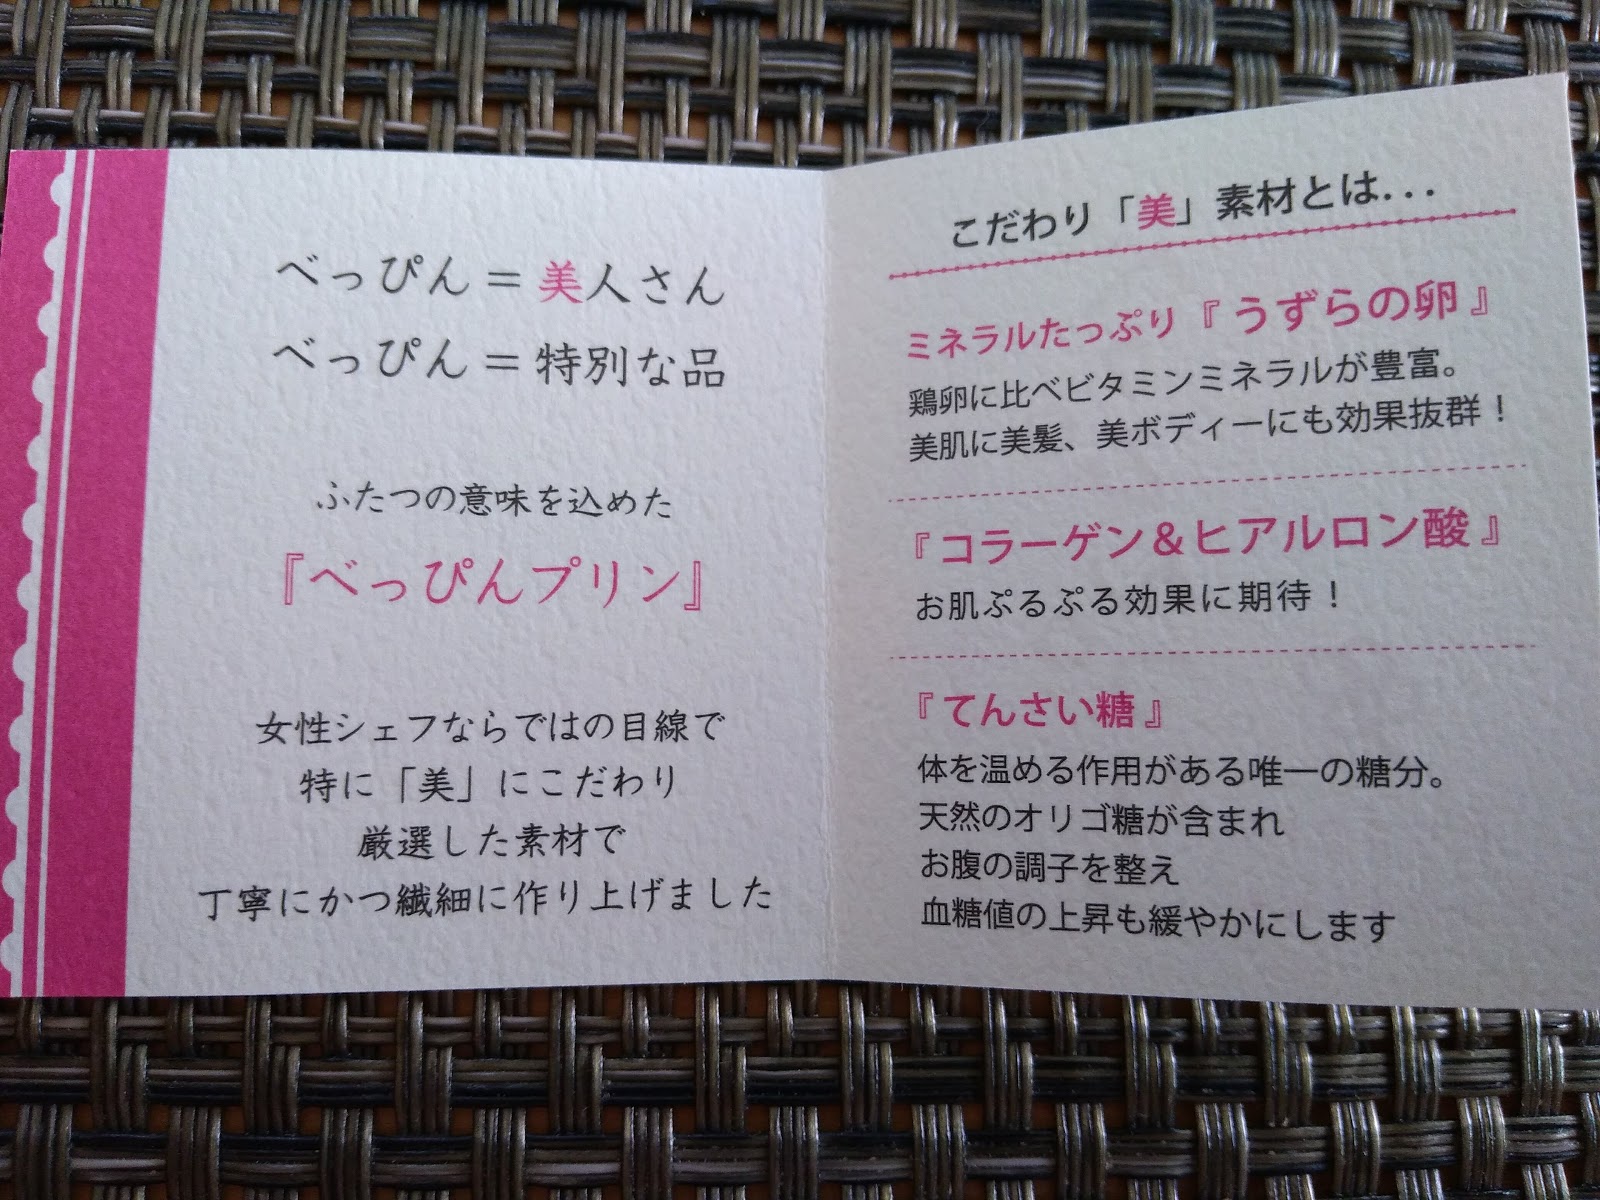 べっぴん=美人さん
べっぴん=特別な品
ふたつの意味を込めた
『べっぴんプリン』
女性シェフならではの目線で
特に「美」にこだわり
厳選した素材で
丁寧にかつ繊細に作り上げました
こだわり「美」素材とは...
ミネラルたっぷり『うずらの卵』
鶏卵に比べビタミンミネラルが豊富。
美肌に美髪、美ボディーにも効果抜群！
『コラーゲン＆ヒアルロン酸』
お肌ぷるぷる効果に期待！
『てんさい糖』
体を温める作用がある唯一の糖分。
天然のオリゴ糖が含まれ
お腹の調子を整え
血糖値の上昇も緩やかにします